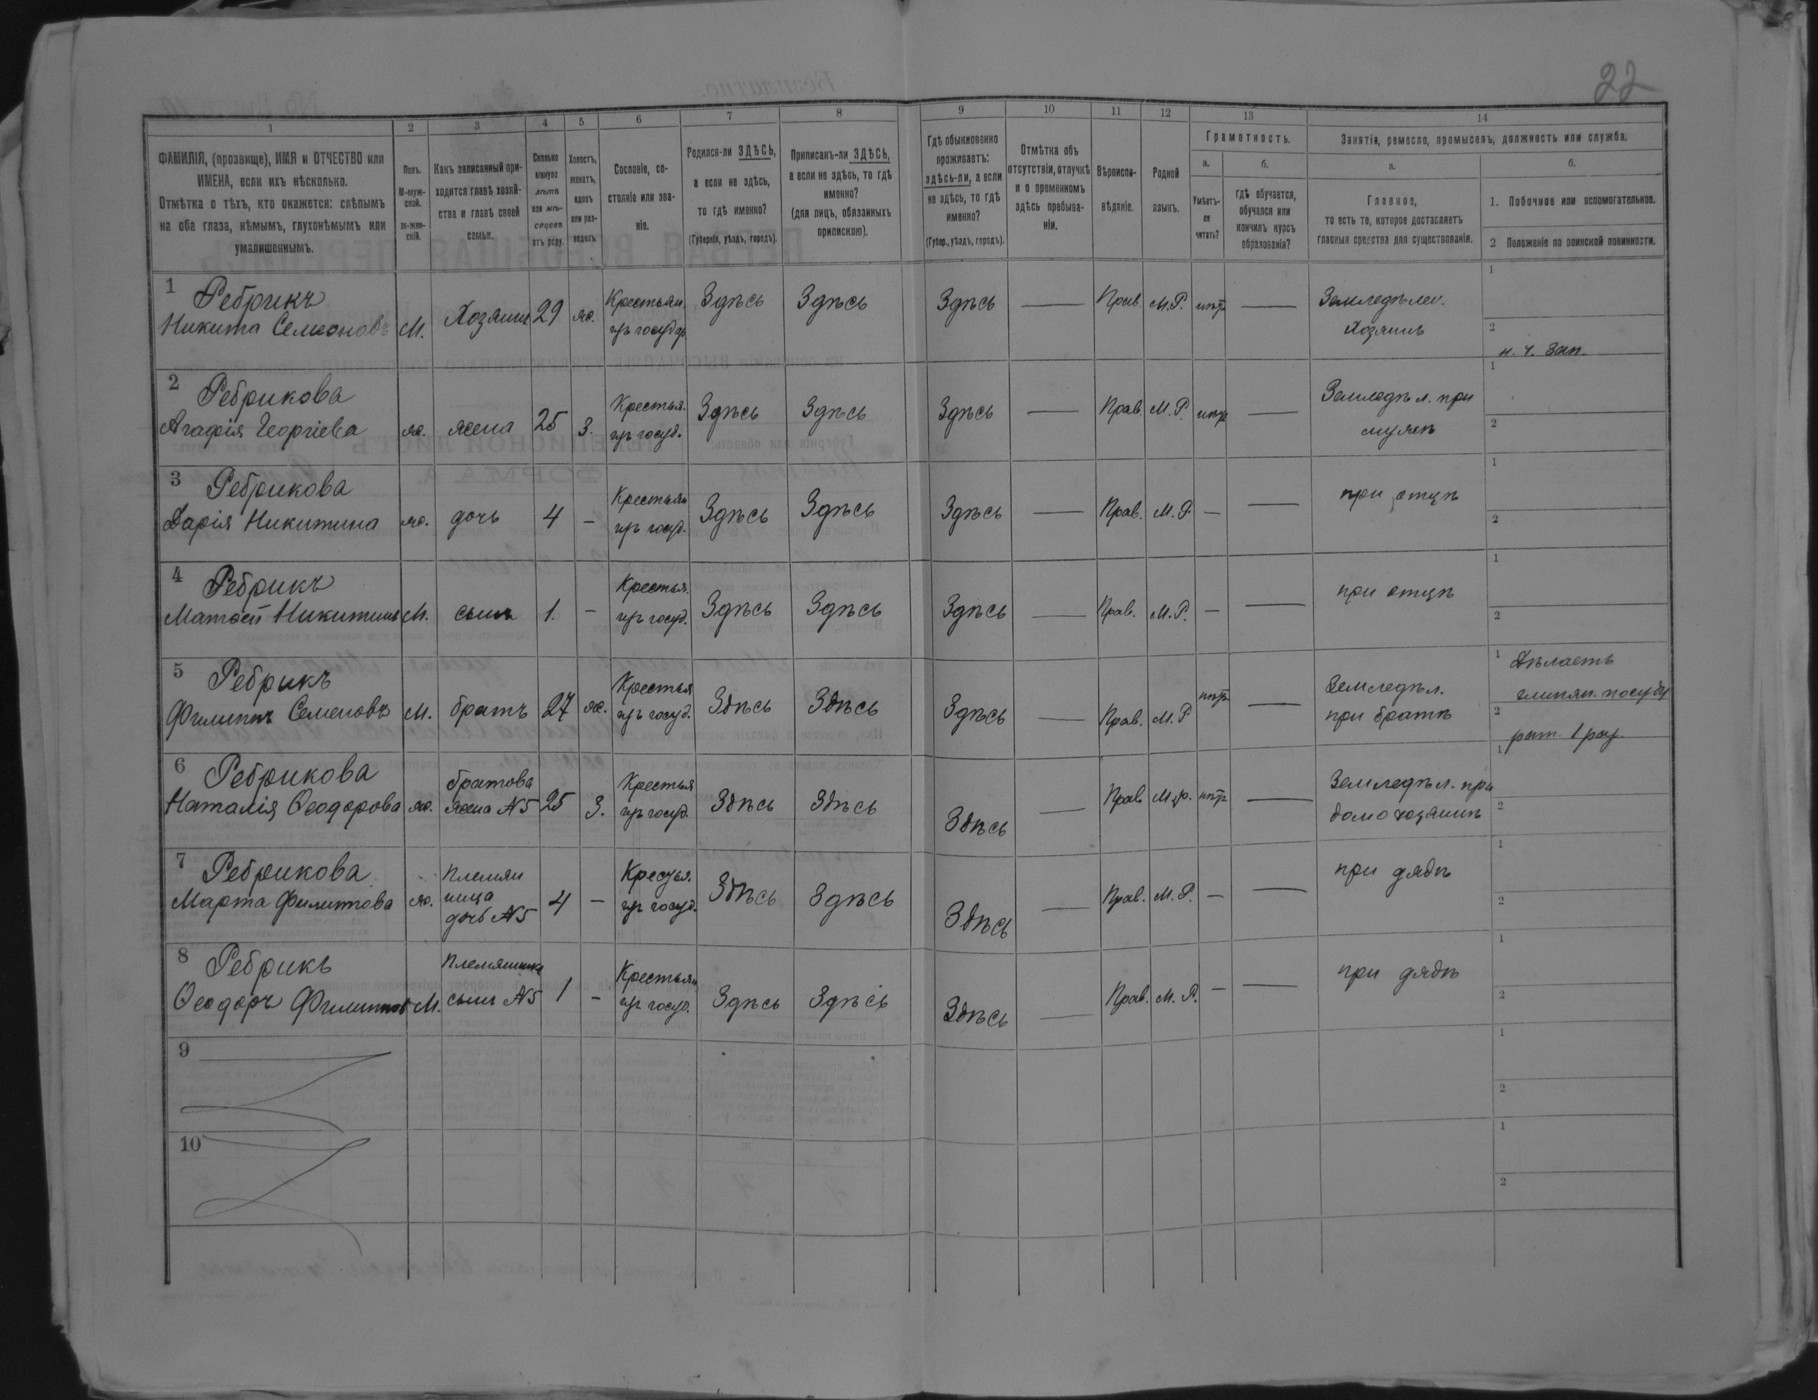 22
1 2 3 4 5 6 7 8 9 10 11 12 13 14
ФАМИЛІЯ, (прозвище), ИМЯ и ОТЧЕСТВО или
ИМЕНА, если ихъ нѣсколько.
Отмѣтка о тѣхъ, кто окажется: слѣпымъ
на оба глаза, нѣмымъ, глухонѣмымъ или
умалишеннымъ.
Полъ.
М-муж-
ской.
Ж-жен-
скій.
Какъ записанный при-
ходится главѣ хозяй-
ства и главѣ своей
семьи.
Сколько
минуло
лѣтъ
или мѣ-
сяцевъ
отъ роду.
Холостъ,
женатъ,
вдовъ
или раз-
веденъ.
Сословіе, со-
стояніе или зва-
ніе.
Родился-ли ЗДѢСЬ,
а если не здѣсь,
то гдѣ именно?
(Губернія, уѣздъ, городъ).
Приписанъ-ли ЗДѢСЬ,
а если не здѣсь, то гдѣ
именно?
(для лицъ, обязанныхъ
припискою).
Гдѣ обыкновенно
проживаетъ:
здѣсь-ли, а если
не здѣсь, то гдѣ
именно?
(Губер., уѣздъ, городъ).
Отмѣтка объ
отсутствіи, отлучкѣ
и о временномъ
здѣсь пребыва-
ніи.
Вѣроиспо-
вѣданіе.
Родной
языкъ.
Грамотность.
а.
Умѣетъ-
ли
читать?
б.
Гдѣ обучается,
обучался или
кончилъ курсъ
образованія?
Занятія, ремесло, промыселъ, должность или служба.
а.
Главное,
то есть то, которое доставляетъ
главныя средства для существованія.
б.
1. Побочное или вспомогательное.
2 Положеніе по воинской повинности.
1 Ребрикъ
Никита Семеновъ М. Хозяинъ 29 ж. Крестьян.
изъ госуд. Здѣсь Здѣсь Здѣсь — Прав. М.Р. нѣтъ — Земледѣлец.
Хозяинъ 1
2
2 Ребрикова
Агафія Георгіева ж. жена 25 з. Крестья.
изъ госуд. Здѣсь Здѣсь Здѣсь — Прав. М.Р. нѣтъ — Земледѣл. при
мужѣ 1
2
3 Ребрикова
Дарія Никитина ж. дочь 4 – Крестьян
изъ госуд. Здѣсь Здѣсь Здѣсь — Прав. М.Р. – — при отцѣ 1
2
4 Ребрикъ
Матѳей Никитинъ М. сынъ 1. – Крестья.
изъ госуд. Здѣсь Здѣсь Здѣсь — Прав. М.Р. – — при отцѣ 1
2
5 Ребрикъ
Филиппъ Семеновъ М. братъ 27 ж. Крестья
изъ госуд. Здѣсь Здѣсь Здѣсь — Прав. М.Р нѣтъ — Земледѣл.
при братѣ 1 Дѣлаетъ
глинян. посуду
2 рат. 1 раз.
6 Ребрикова
Наталія Ѳеодорова ж. братова
жена №5 25 з. Крестья
изъ госуд. Здѣсь Здѣсь Здѣсь — Прав М.р. нѣтъ — Земледѣл. при
домохозяинѣ 1
2
7 Ребрикова
Марта Филиппова ж. Племян
ница
дочь №5 4 – Крестья.
изъ госуд. Здѣсь Здѣсь Здѣсь — Прав. М.Р. – — при дядѣ 1
2
8 Ребрикъ
Ѳеодоръ Филиппов М. Племянникъ
сынъ №5 1 – Крестьян
изъ госуд. Здѣсь Здѣсь Здѣсь — Прав. М.Р. – — при дядѣ 1
2
9 1
2
10 1
2